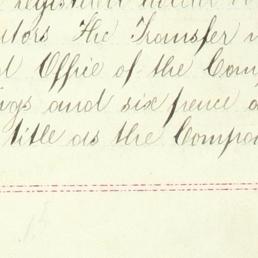 registered holder
utors The Transfer
Office of the Com
ngs and six pence
title as the Compa